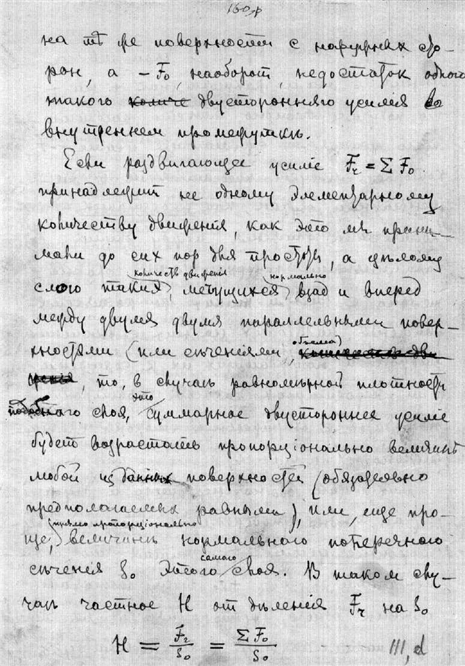 160,
на тѣ же поверхности с наружных сто-
рон, а – F₀, наоборот, недостаток одного
такого двустороннего усилія во
внутреннем промежуткѣ.
Если раздвигающее усиліе Fᵣ = Σ F₀
принадлежит не одному элементарному
количеству движенія, как это мы прини-
мали до сих пор для простоты, а цѣлому
количеств движенія нормально
слою таких, мечущихся взад и вперед
между двумя двумя параллельными повер-
хностями (или сѣченіями
то, в случаѣ равномѣрной плотности
этого
слоя, суммарное двустороннее усиліе
будет возрастать пропорціонально величинѣ
любой из данных поверхностей (обязательно
предполагаемых равными), или, еще про-
прямо пропорціонально
ще, величинѣ нормального поперечного
самого
сѣченія s₀ этого слоя. В таком слу-
чаѣ частное H от дѣленія Fᵣ на s₀
H = Fᵣ/s₀ = Σ F₀/s₀
III, d